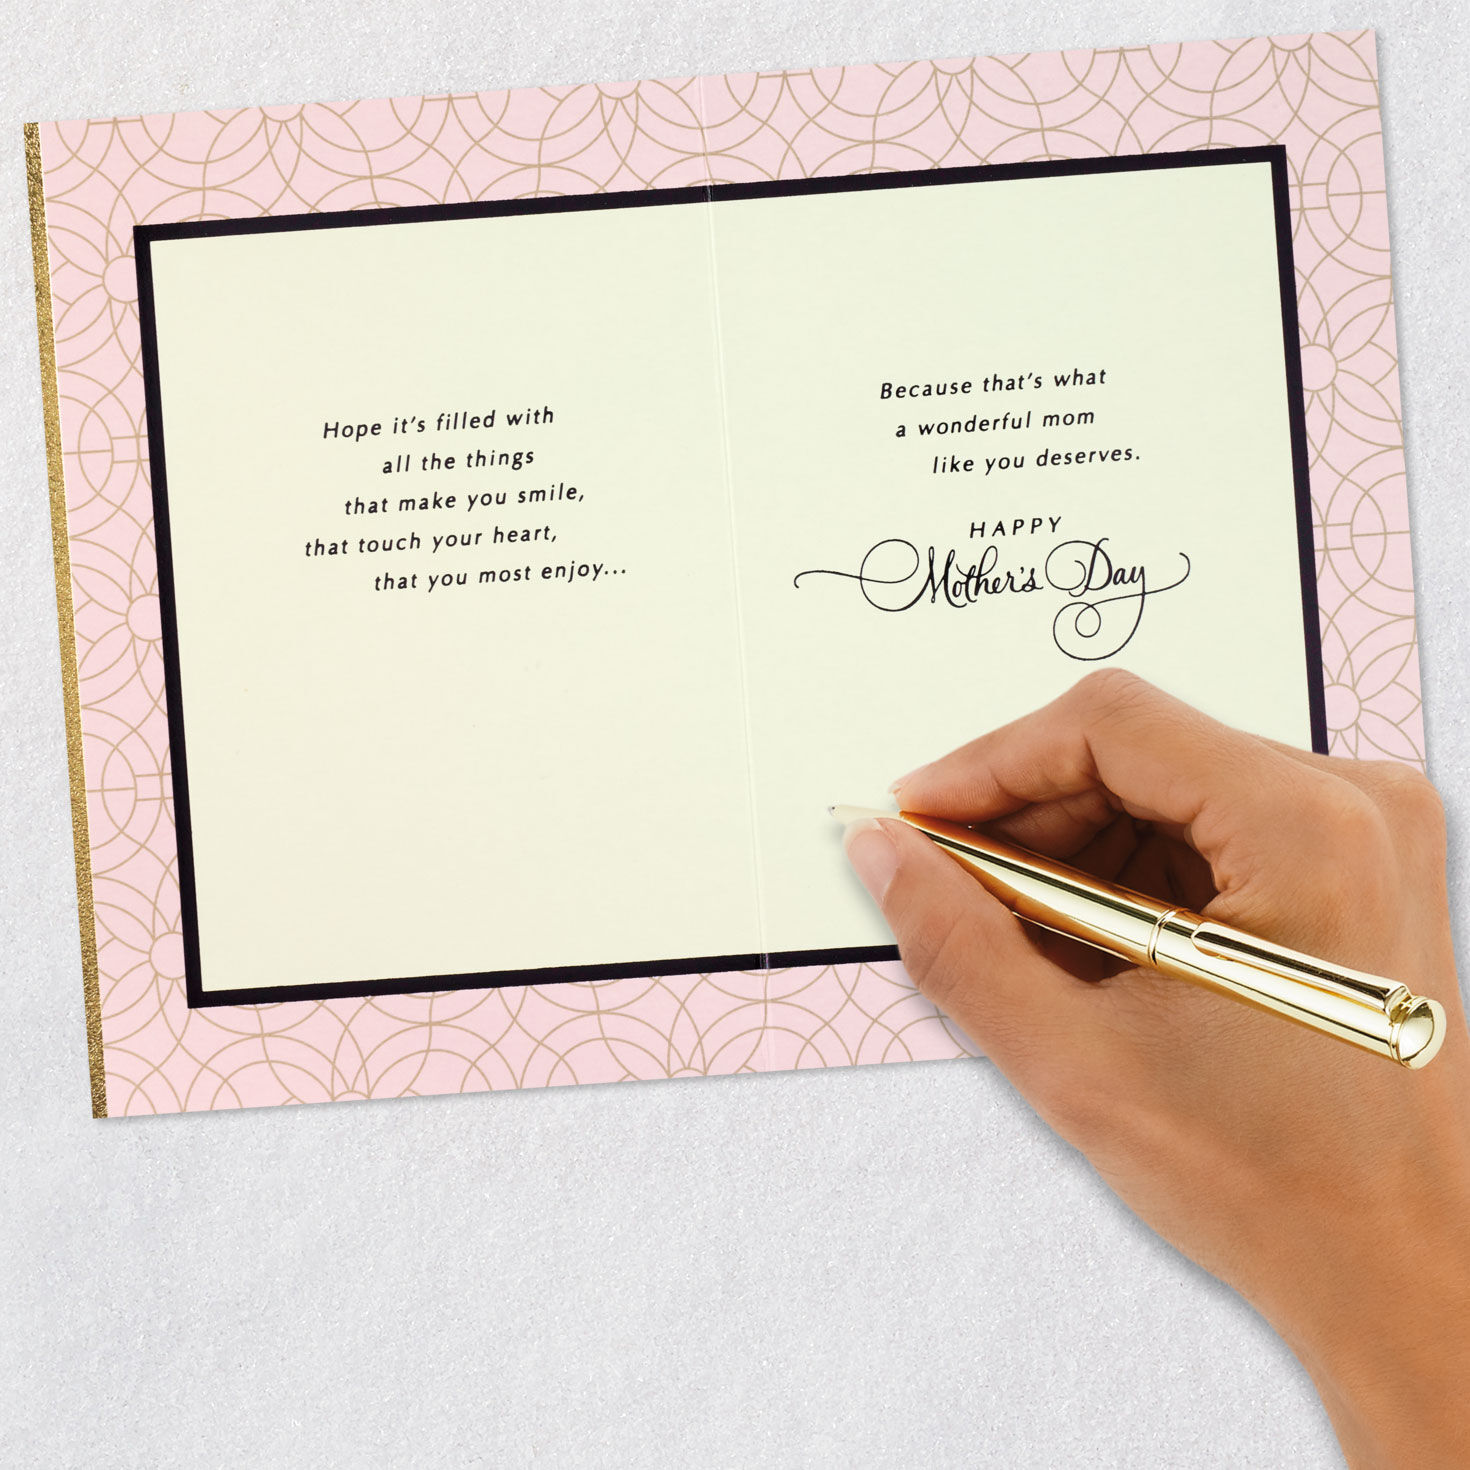 Hope it's filled with
all the things
that make you smile,
that touch your heart,
that you most enjoy...
Because that's what
a wonderful mom
like you deserves.
HAPPY
Mother's Day